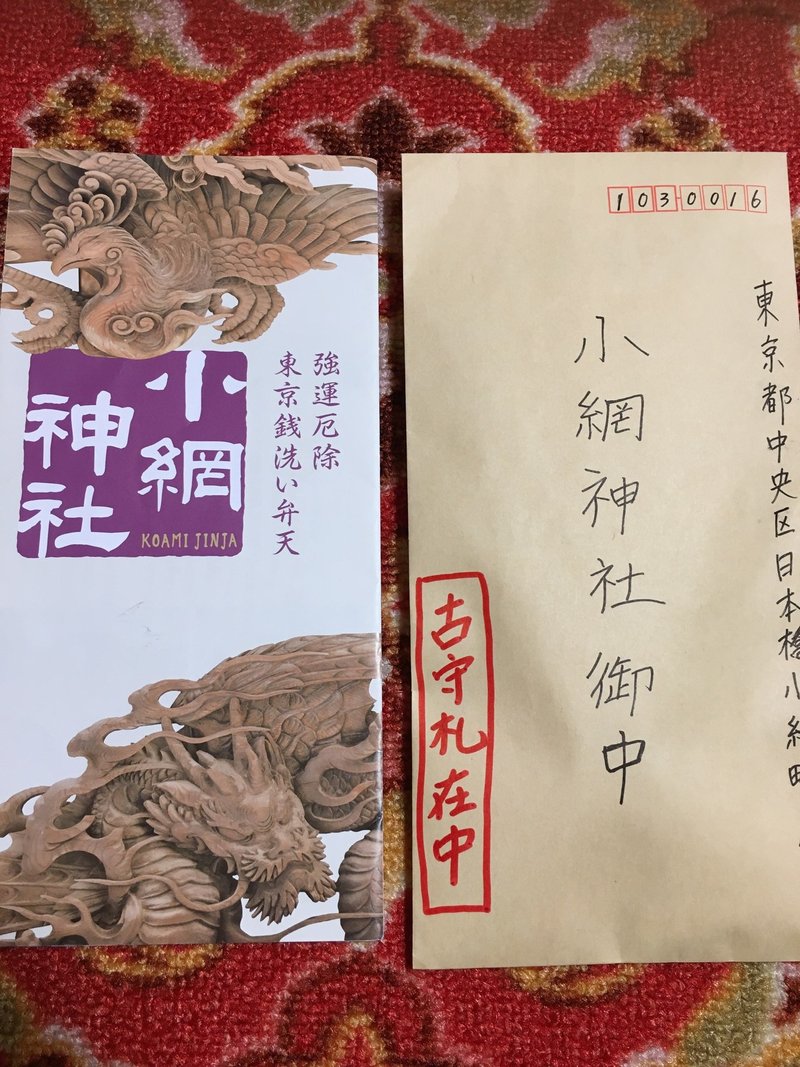 強運厄除
東京銭洗い弁天
小網
神社
KOAMI JINJA
1030016
東京都中央区日本橋小網町
小網神社御中
古守札在中